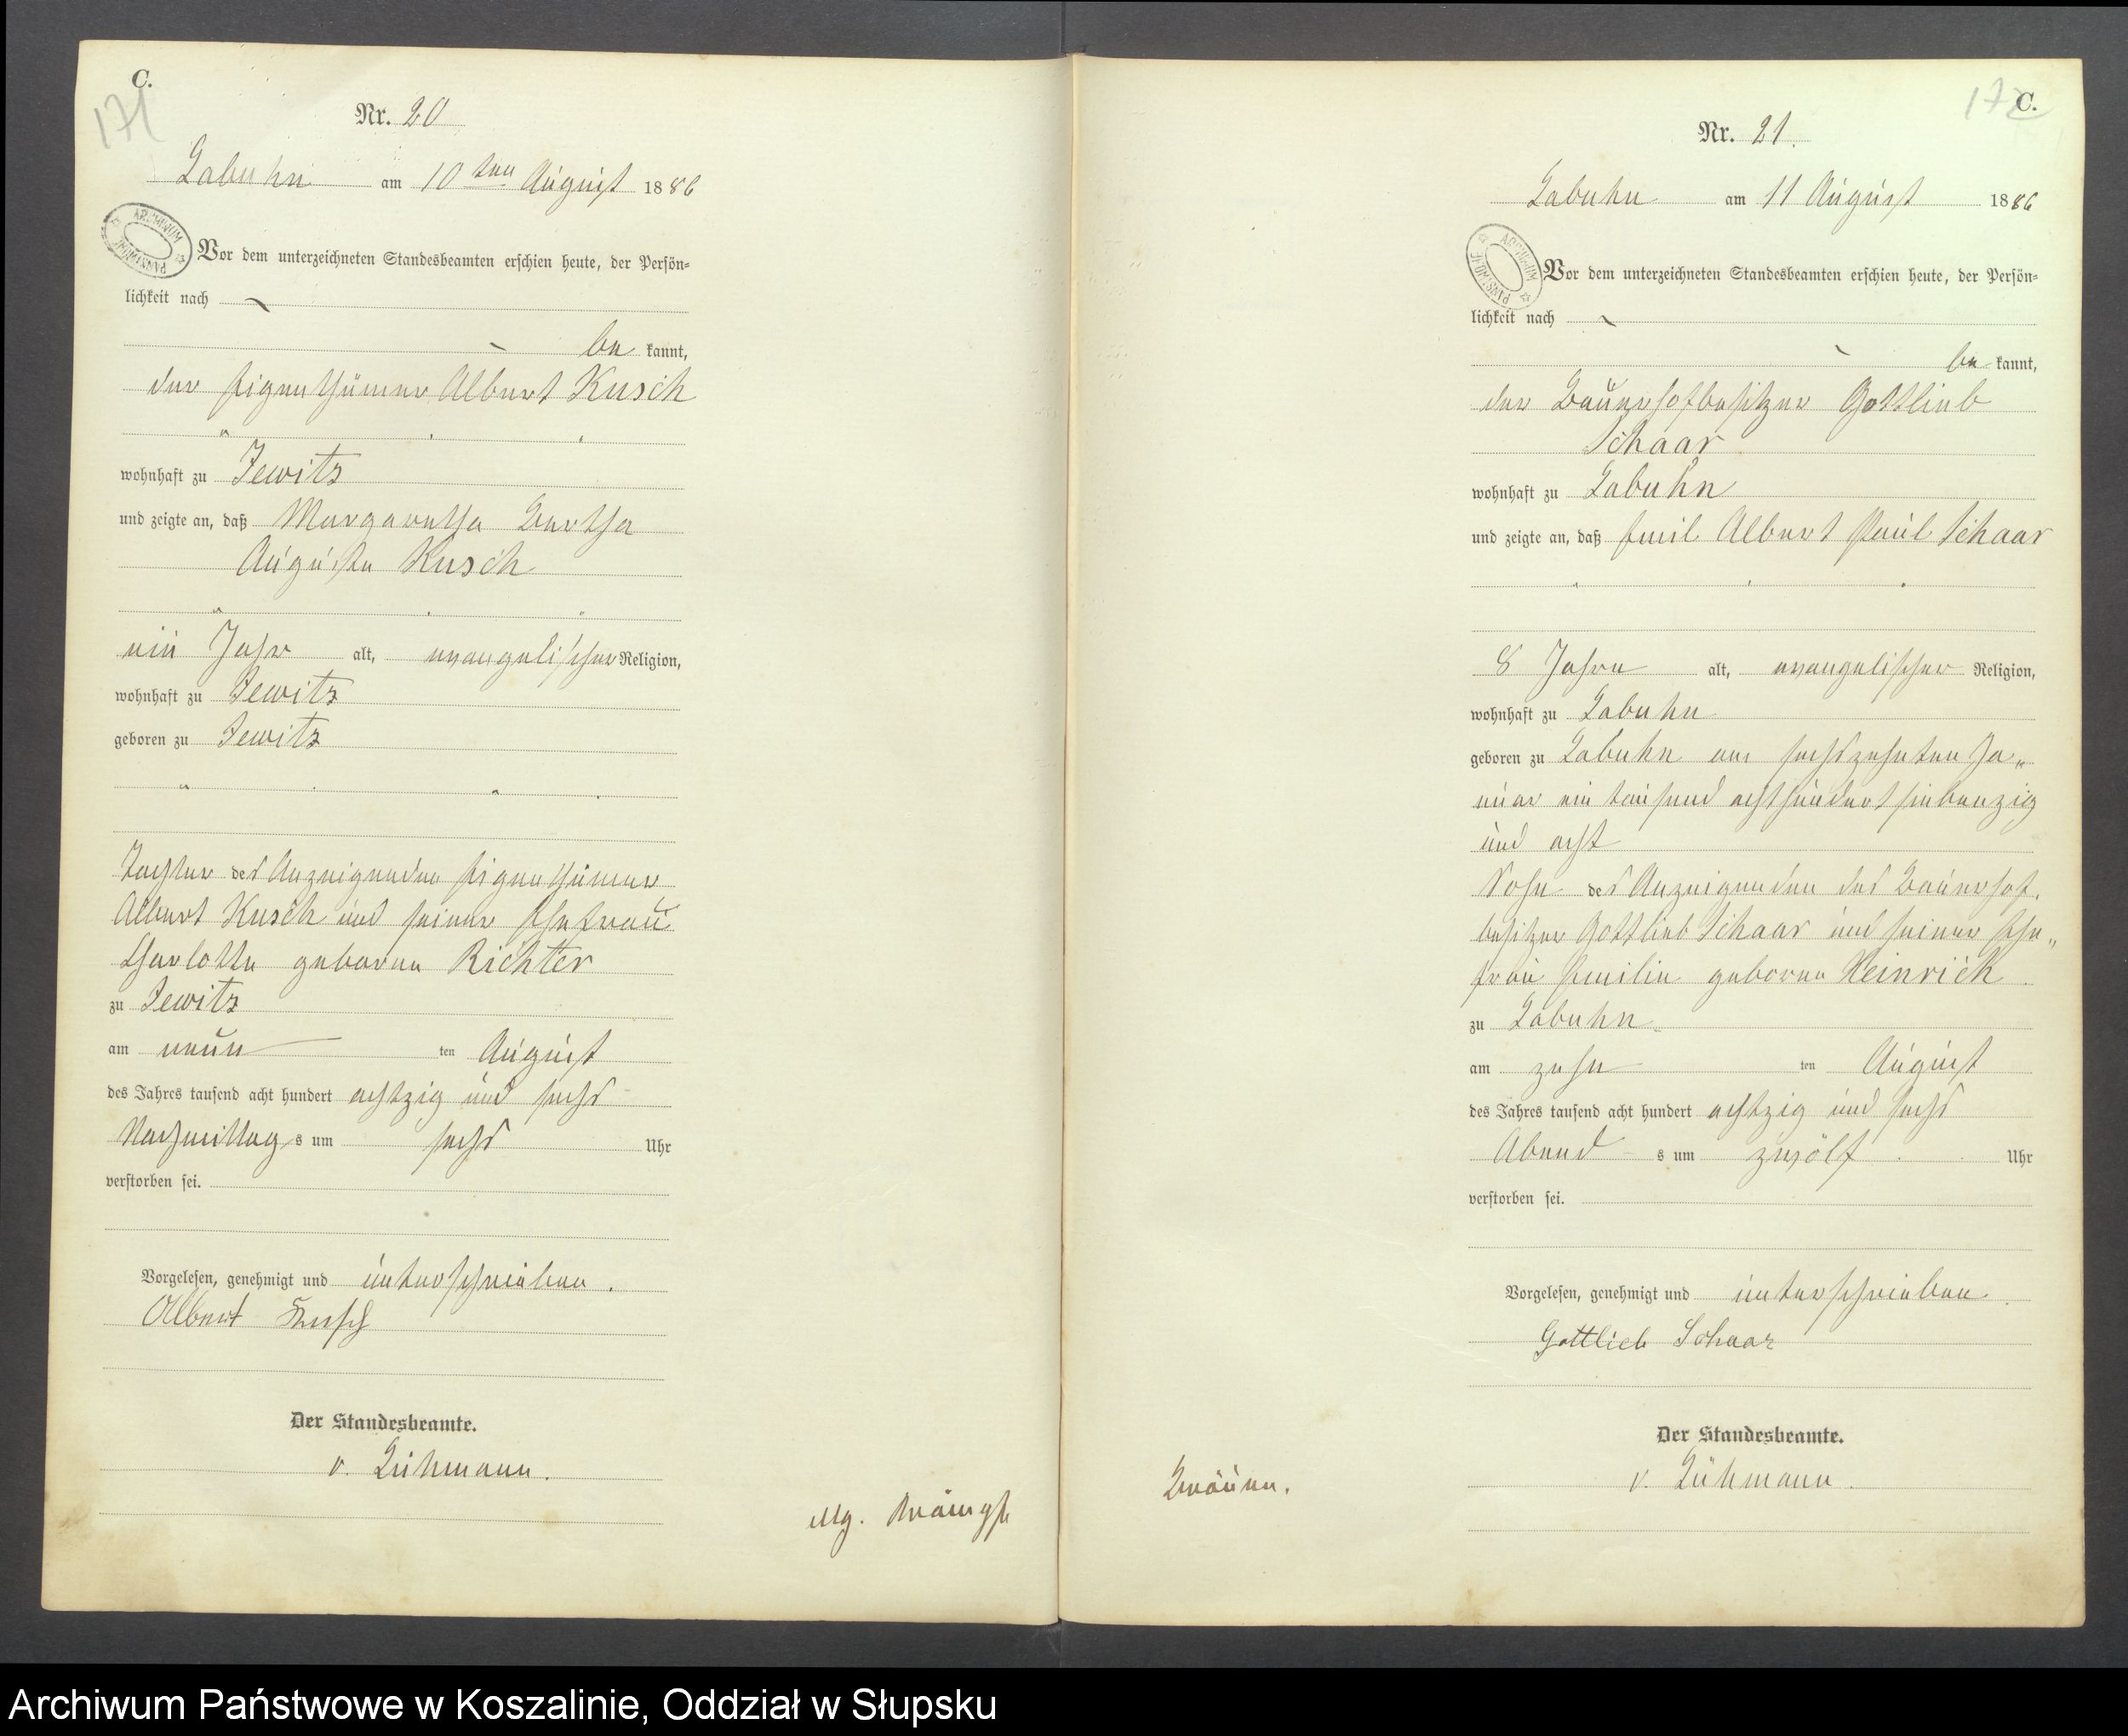 C.
171
Nr. 20
Labuhn am 10ten August 1886
ARCHIWUM PAŃSTWOWE
Vor dem unterzeichneten Standesbeamten erschien heute, der Persön=
lichkeit nach
be kannt,
der Eigenthümer Albert Kusch
wohnhaft zu Jewitz
und zeigte an, daß Margaretha Bertha
Auguste Kusch
ein Jahr alt, evangelischer Religion,
wohnhaft zu Jewitz
geboren zu Jewitz
Tochter des Anzeigenden Eigenthümer
Albert Kusch und seiner Ehefrau
Charlotte geborene Richter
zu Jewitz
am neun ten August
des Jahres tausend acht hundert achtzig und sechs
Nachmittags um sechs Uhr
verstorben sei.
Vorgelesen, genehmigt und unterschrieben.
Albert Kusch
Der Standesbeamte.
v. Lühmann.
Mg. Krämpfe
172
C.
Nr. 21.
Labuhn am 11 August 1886
ARCHIWUM PAŃSTWOWE
Vor dem unterzeichneten Standesbeamten erschien heute, der Persön=
lichkeit nach
be kannt,
der Bauerhofbesitzer Gottlieb
Schaar
wohnhaft zu Labuhn
und zeigte an, daß Emil Albert Paul Schaar
8 Jahre alt, evangelischer Religion,
wohnhaft zu Labuhn
geboren zu Labuhn am sechszehnten Ja„
nuar ein tausend achthundert siebenzig
und acht
Sohn des Anzeigenden des Bauerhof.
besitzer Gottlieb Schaar und seiner Ehe„
frau Emilie geborene Heinrich
zu Labuhn
am zehn ten August
des Jahres tausend acht hundert achtzig und sechs
Abends um zwölf Uhr
verstorben sei.
Vorgelesen, genehmigt und unterschrieben.
Gottlieb Schaar
Der Standesbeamte.
v. Lühmann.
Bräune.
Archiwum Państwowe w Koszalinie, Oddział w Słupsku